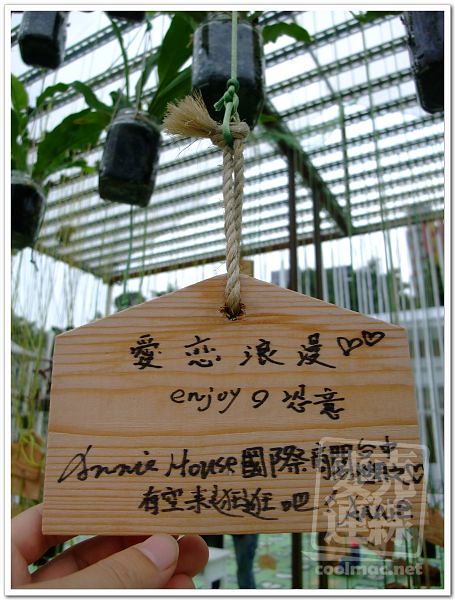 愛戀浪漫♡♡
enjoy 9 恣意
Annie House 國際 台中
有空来逛逛吧 Annie
coolmac.net